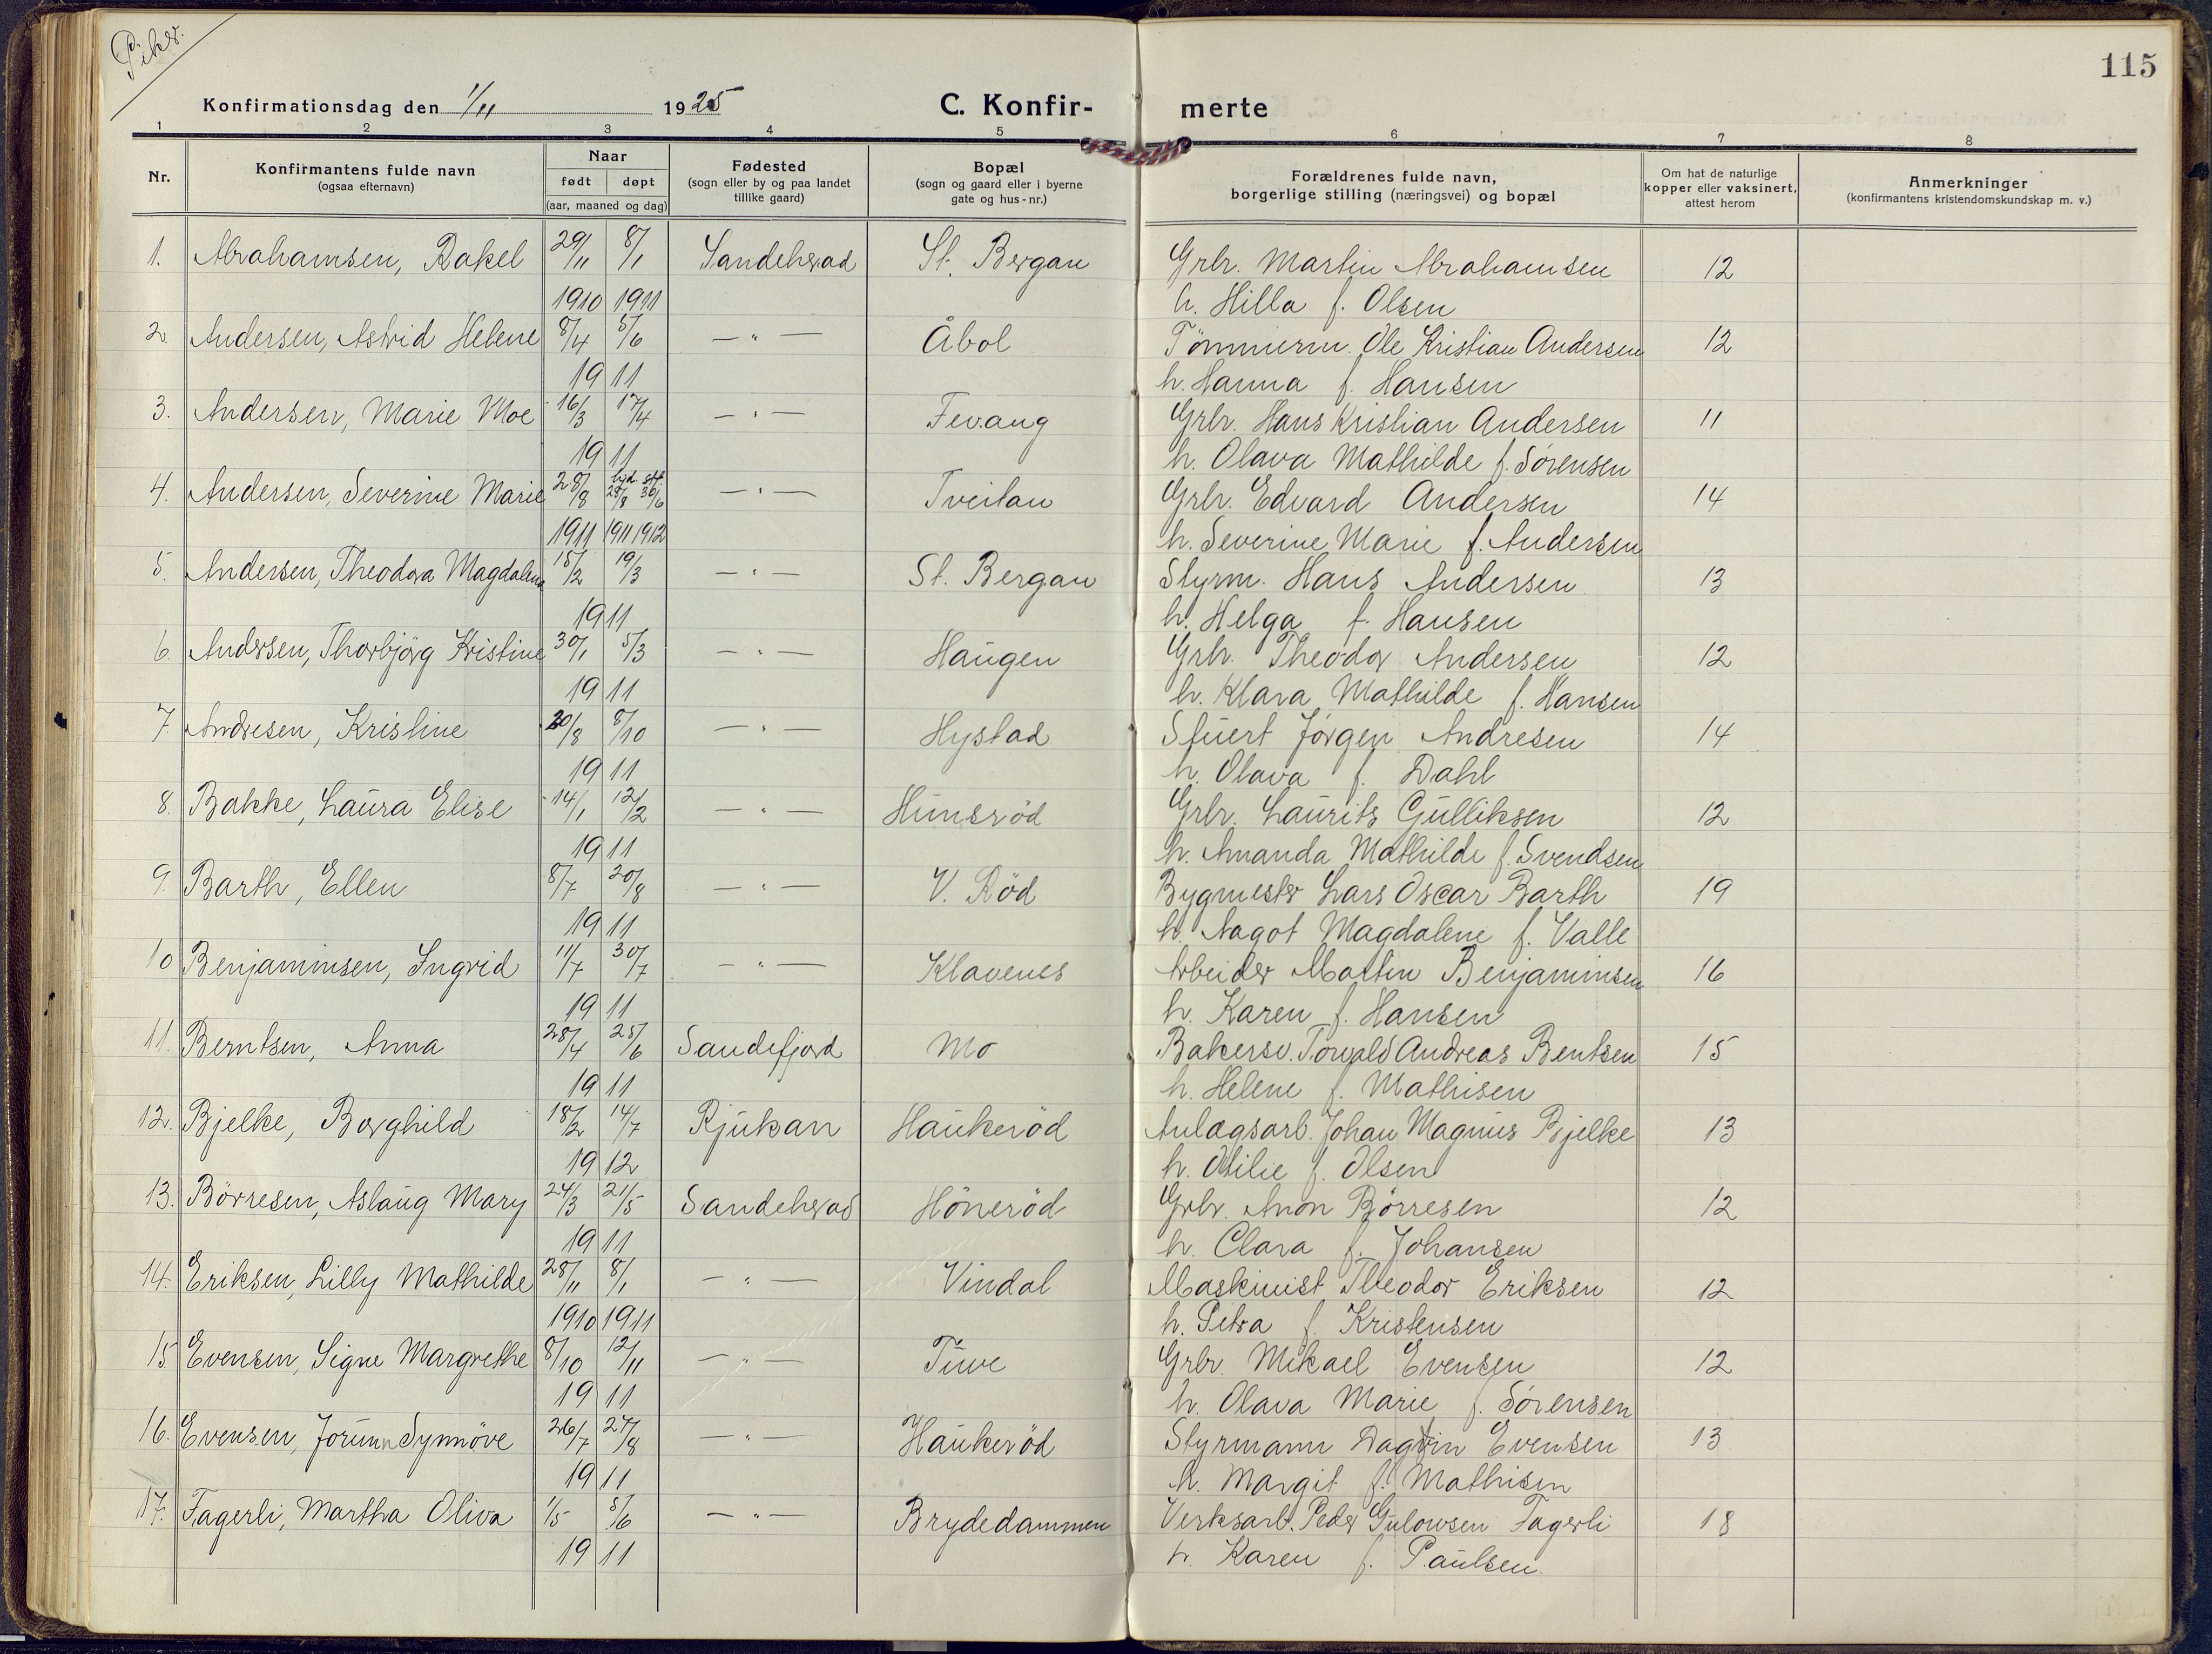 Piker.
115
Konfirmationsdag den 1/11 1925 C. Konfir- merte
1 2 3 4 5 6 7 8
Nr. Konfirmantens fulde navn (ogsaa efternavn) Naar født døpt (aar, maaned og dag) Fødested (sogn eller by og paa landet tillike gaard) Bopæl (sogn og gaard eller i byerne gate og hus-nr.) Forældrenes fulde navn, borgerlige stilling (næringsvei) og bopæl Om hat de naturlige kopper eller vaksinert, attest herom Anmerkninger (konfirmantens kristendomskundskap m. v.)
1. Abrahamsen, Rakel 29/11 8/1 Sandeherad St. Bergan Grbr. Martin Abrahamsen 12
1910 1911 h. Hilla f. Olsen
2. Andersen, Astrid Helene 8/4 5/6 — " — Åbol Tømmerm. Ole Kristian Andersen 12
1911 h. Hanna f. Hansen
3. Andersen, Marie Moe 16/3 17/4 — " — Fevang Grbr. Hans Kristian Andersen 11
1911 h. Olava Mathilde f. Sørensen
4. Andersen, Severine Marie 28/8 hjd. 29/8 stf. 30/6 — " — Tveitan Grbr. Edvard Andersen 14
1911 1911 1912 h. Severine Marie f. Andersen
5. Andersen, Theodora Magdalena 15/2 19/3 — " — St. Bergan Styrm. Hans Andersen 13
1911 h. Helga f. Hansen
6. Andersen, Thorbjørg Kristine 30/1 5/3 — " — Haugen Grbr. Theodor Andersen 12
1911 h. Klara Mathilde f. Hansen
7. Andresen, Kristine 20/8 8/10 — " — Hystad Stuert Jørgen Andresen 14
1911 h. Olava f. Dahl
8. Bakke, Laura Elise 14/1 12/2 — " — Hunsrød Grbr. Laurits Gulliksen 12
1911 h. Amanda Mathilde f. Svendsen
9. Barth, Ellen 8/7 20/8 — " — V. Rød Bygmester Lars Oscar Barth 19
1911 h. Aagot Magdalene f. Valle
10 Benjaminsen, Ingrid 11/7 30/7 — " — Klavenes Arbeider Martin Benjaminsen 16
1911 h. Karen f. Hansen
11. Berntsen, Anna 28/4 25/6 Sandefjord Mo Bakersv. Torvald Andreas Bentsen 15
1911 h. Helene f. Mathisen
12. Bjelke, Borghild 18/2 14/7 Rjukan Haukerød Anlægsarb. Johan Magnus Bjelke 13
1912 h. Otilie f. Olsen
13. Børresen, Aslaug Mary 24/3 21/5 Sandeherad Hønerød Grbr. Anon Børresen 12
1911 h. Clara f. Johansen
14. Eriksen, Lilly Mathilde 28/11 8/1 — " — Vindal Maskinist Theodor Eriksen 12
1910 1911 h. Petra f. Kristensen
15 Evensen, Signe Margrethe 8/10 12/11 — " — Tuve Grbr. Mikael Evensen 12
1911 h. Olava Marie f. Sørensen
16. Evensen, Jorunn Synnøve 26/7 27/8 — " — Haukerød Styrmann Dagfin Evensen 13
1911 h. Margit f. Mathisen
17. Fagerli, Martha Oliva 1/5 5/6 — " — Brydedammen Verksarb. Peder Gulowsen Fagerli 18
1911 h. Karen f. Paulsen.